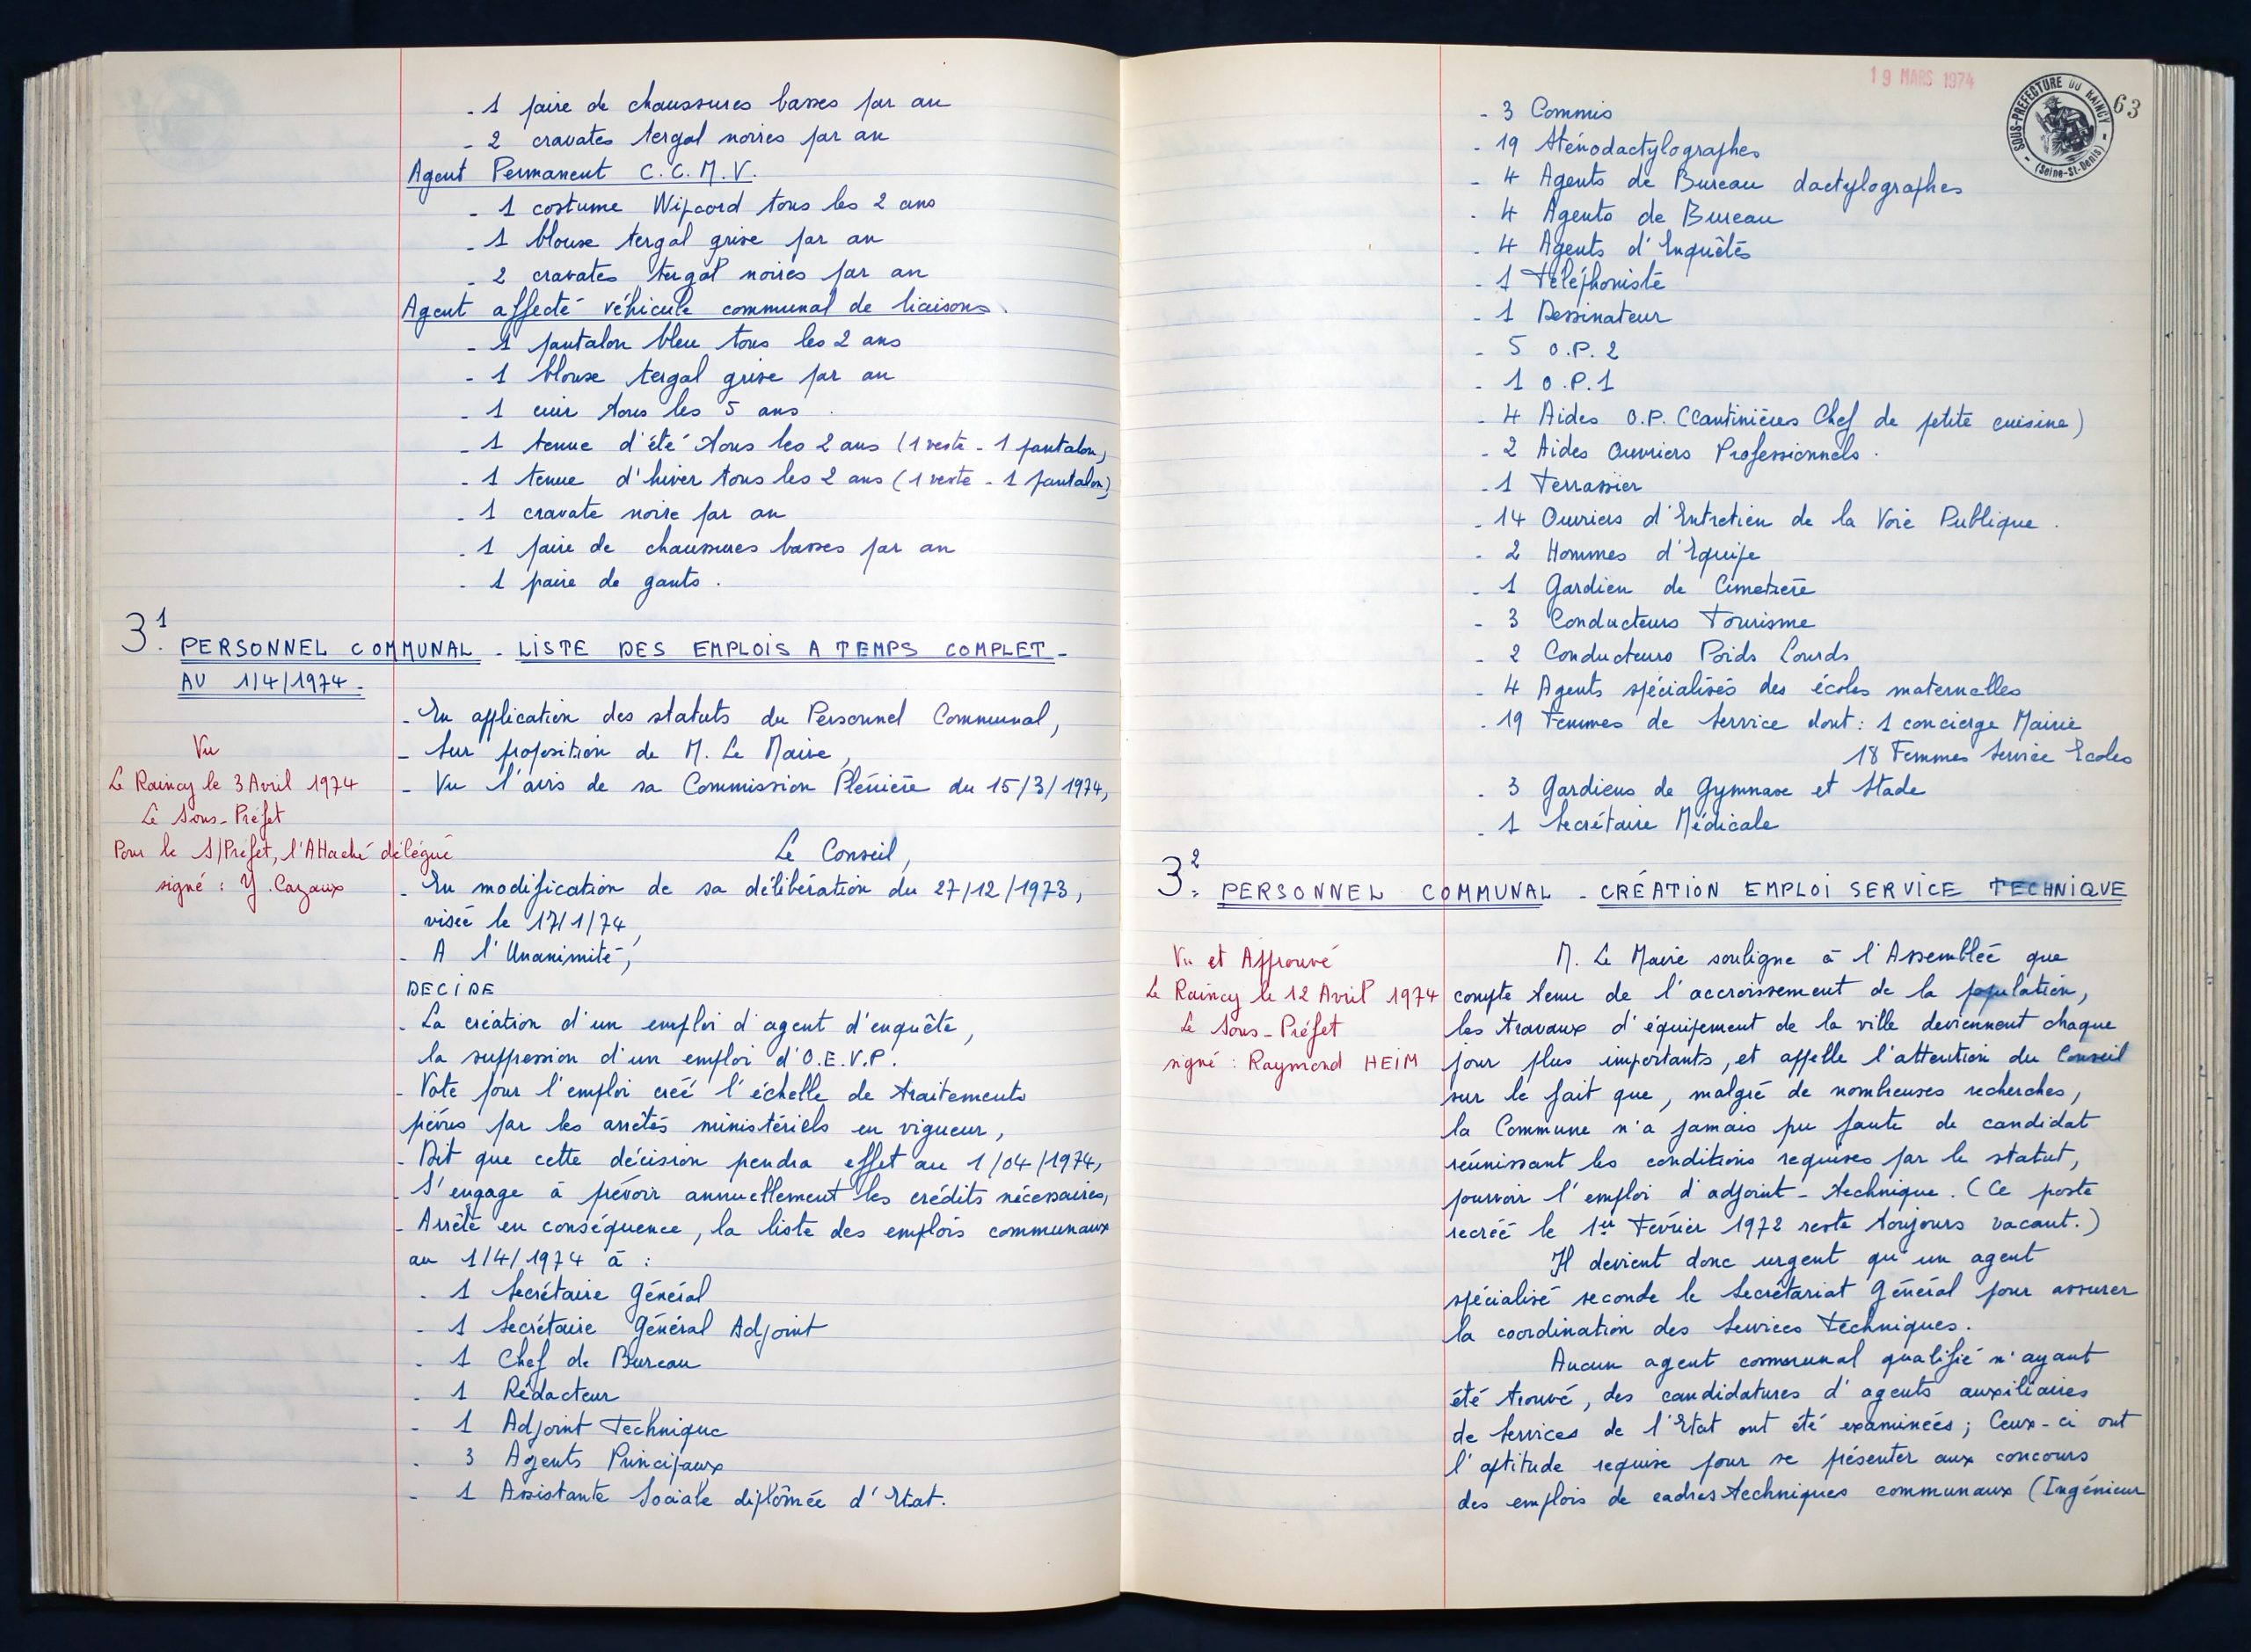 - 1 paire de chaussures basses par an
- 2 cravates tergal noires par an
Agent Permanent C.C.M.V.
- 1 costume Wipcord tous les 2 ans
- 1 blouse tergal grise par an
- 2 cravates tergal noires par an
Agent affecté véhicule communal de liaisons.
- 1 pantalon bleu tous les 2 ans
- 1 blouse tergal grise par an
- 1 cuir tous les 5 ans.
- 1 tenue d'été tous les 2 ans (1 veste - 1 pantalon)
- 1 tenue d'hiver tous les 2 ans (1 veste - 1 pantalon)
- 1 cravate noire par an
- 1 paire de chaussures basses par an
- 1 paire de gants.
3.1 PERSONNEL COMMUNAL - LISTE DES EMPLOIS A TEMPS COMPLET -
AU 1/4/1974.
- En application des statuts du Personnel Communal,
- Sur proposition de M. Le Maire,
- Vu l'avis de sa Commission Plénière du 15/3/1974,
Vu
Le Raincy le 3 Avril 1974
Le Sous-Préfet
Pour le S/Préfet, l'Attaché délégué
signé : Y. Cazaux
Le Conseil,
- En modification de sa délibération du 27/12/1973,
visée le 17/1/74,
- A l'Unanimité,
DECIDE
- La création d'un emploi d'agent d'enquête,
la suppression d'un emploi d'O.E.V.P.
- Vote pour l'emploi créé l'échelle de traitements
prévus par les arrêtés ministériels en vigueur,
- Dit que cette décision pendra effet au 1/04/1974,
- S'engage à prévoir annuellement les crédits nécessaires,
- Arrête en conséquence, la liste des emplois communaux
au 1/4/1974 à :
- 1 Secrétaire Général
- 1 Secrétaire Général Adjoint
- 1 Chef de Bureau
- 1 Rédacteur
- 1 Adjoint Technique
- 3 Agents Principaux
- 1 Assistante Sociale diplômée d'Etat.
19 MARS 1974
SOUS-PREFECTURE DU RAINCY
(Seine-St-Denis)
63
- 3 Commis
- 19 Sténodactylographes
- 4 Agents de Bureau dactylographes
- 4 Agents de Bureau
- 4 Agents d'Enquêtes
- 1 Téléphoniste
- 1 Dessinateur
- 5 O.P.2
- 1 O.P.1
- 4 Aides O.P. (Cantinières Chef de petite cuisine)
- 2 Aides Ouvriers Professionnels.
- 1 Terrassier
- 14 Ouvriers d'Entretien de la Voie Publique.
- 2 Hommes d'Equipe
- 1 Gardien de Cimetière
- 3 Conducteurs Tourisme
- 2 Conducteurs Poids Lourds
- 4 Agents spécialisés des écoles maternelles
- 19 Femmes de Service dont : 1 concierge Mairie
18 Femmes Service Ecoles
- 3 Gardiens de Gymnase et Stade
- 1 Secrétaire Médicale
3.2 PERSONNEL COMMUNAL - CRÉATION EMPLOI SERVICE TECHNIQUE
Vu et Approuvé
Le Raincy le 12 Avril 1974
Le Sous-Préfet
signé : Raymond HEIM
M. Le Maire souligne à l'Assemblée que
compte tenu de l'accroissement de la population,
les travaux d'équipement de la ville deviennent chaque
jour plus importants, et appelle l'attention du Conseil
sur le fait que, malgré de nombreuses recherches,
la Commune n'a jamais pu faute de candidat
réunissant les conditions requises par le statut,
pourvoir l'emploi d'adjoint-technique. (Ce poste
recréé le 1er Février 1972 reste toujours vacant.)
Il devient donc urgent qu'un agent
spécialisé seconde le Secrétariat Général pour assurer
la coordination des Services Techniques.
Aucun agent communal qualifié n'ayant
été trouvé, des candidatures d'agents auxiliaires
de Services de l'Etat ont été examinées ; Ceux-ci ont
l'aptitude requise pour se présenter aux concours
des emplois de cadres techniques communaux (Ingénieur